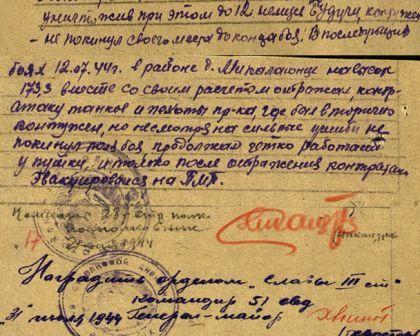 уничтожив при этом до 12 немцев. Будучи
не покинул своего места до конца боя. В последующих
боях 12.07.44г. в районе д. на высоте
173,3 вместе со своим расчетом отражал контр-
атаку танков и пехоты пр-ка, где был вторично
контужен, но несмотря на сильные ушибы не
покинул поля боя продолжал четко работать
у пушки, и только после отражения контратаки
эвакуировался на ПМП.
полк.
1944
Наградить орденом "Славы III ст"
Командир 51 свд
31 июля 1944 Генерал-майор